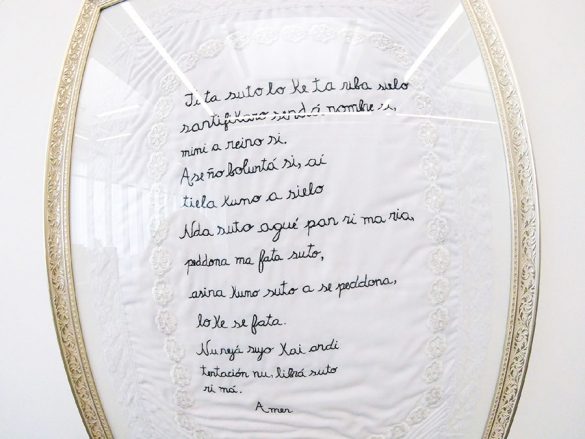 Tita suto lo Ke ta riba sielo
santifikaro sendá nombre si,
mini a reino si.
Aseño boluntá si, aí
tiela Kumo a sielo
Nda suto agué pan ri ma ria,
peddona ma fata suto,
asina Kumo suto a se peddona,
lo Ke se fata.
Nu rejá sujo Kai andi
tentación nu, librá suto
ri má.
Amen